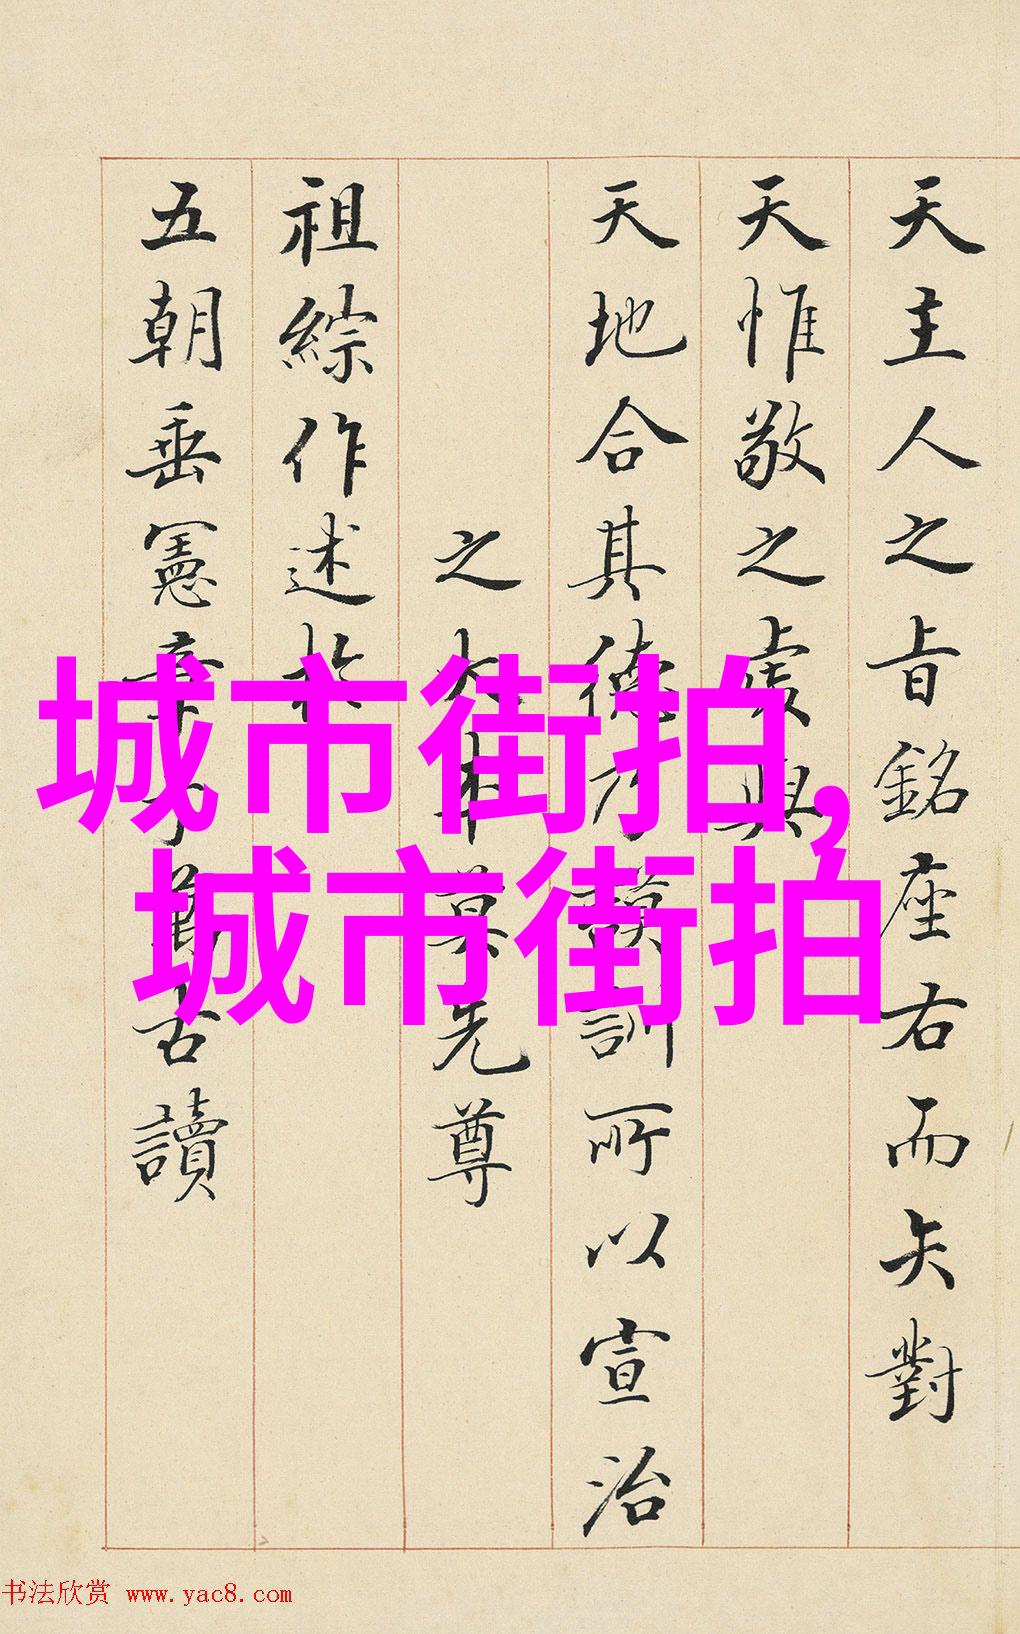 天主人之旨銘座右而矢對
天惟敬之虔與
天地合其德乃謨訓所以宣治
之大本莫先尊
祖綜作述於
五朝垂憲章于萬古讀
城市街拍,
城市街拍
书法欣赏 www.yac8.com